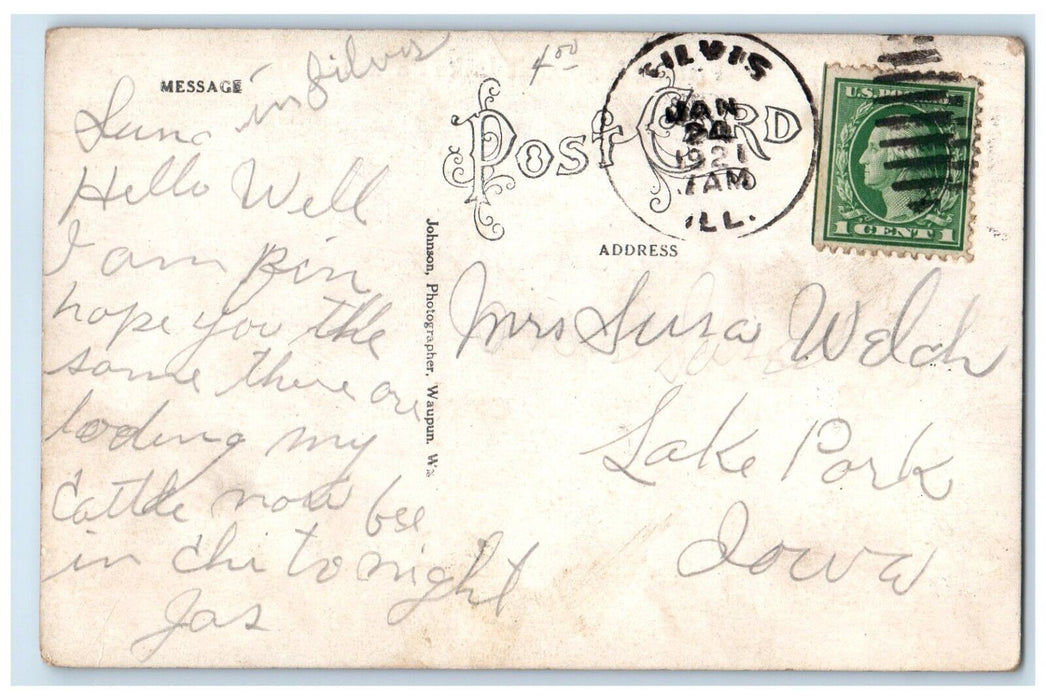 4.00
MESSAGE
in Silvis
Hello Well
I am Rin
hope you the
same there are
loding my
Cattle now bee
in Chi to night
Jas
POST CARD
SILVIS
JAN
24
1921
7AM
ILL.
U.S. POSTAGE
1 CENT 1
ADDRESS
Johnson, Photographer, Waupun. Wis
Mrs Susa Welch
Lake Park
Iowa